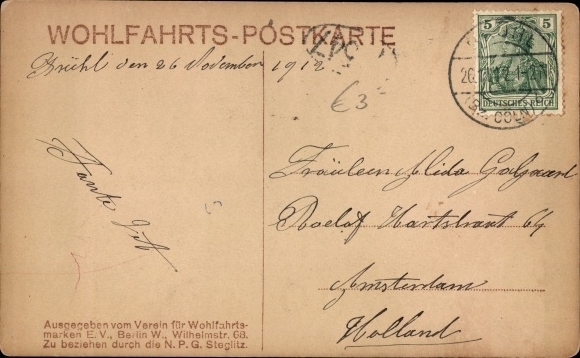 WOHLFAHRTS-POSTKARTE
Brühl den 26 November 1912
€3
5 5
DEUTSCHES REICH
CÖLN
Tante
Fräulein Alida
Roelof Hartstraat 64
Amsterdam
Holland
Ausgegeben vom Verein für Wohlfahrts-
marken E.V., Berlin W., Wilhelmstr. 68.
Zu beziehen durch die N. P. G. Steglitz.